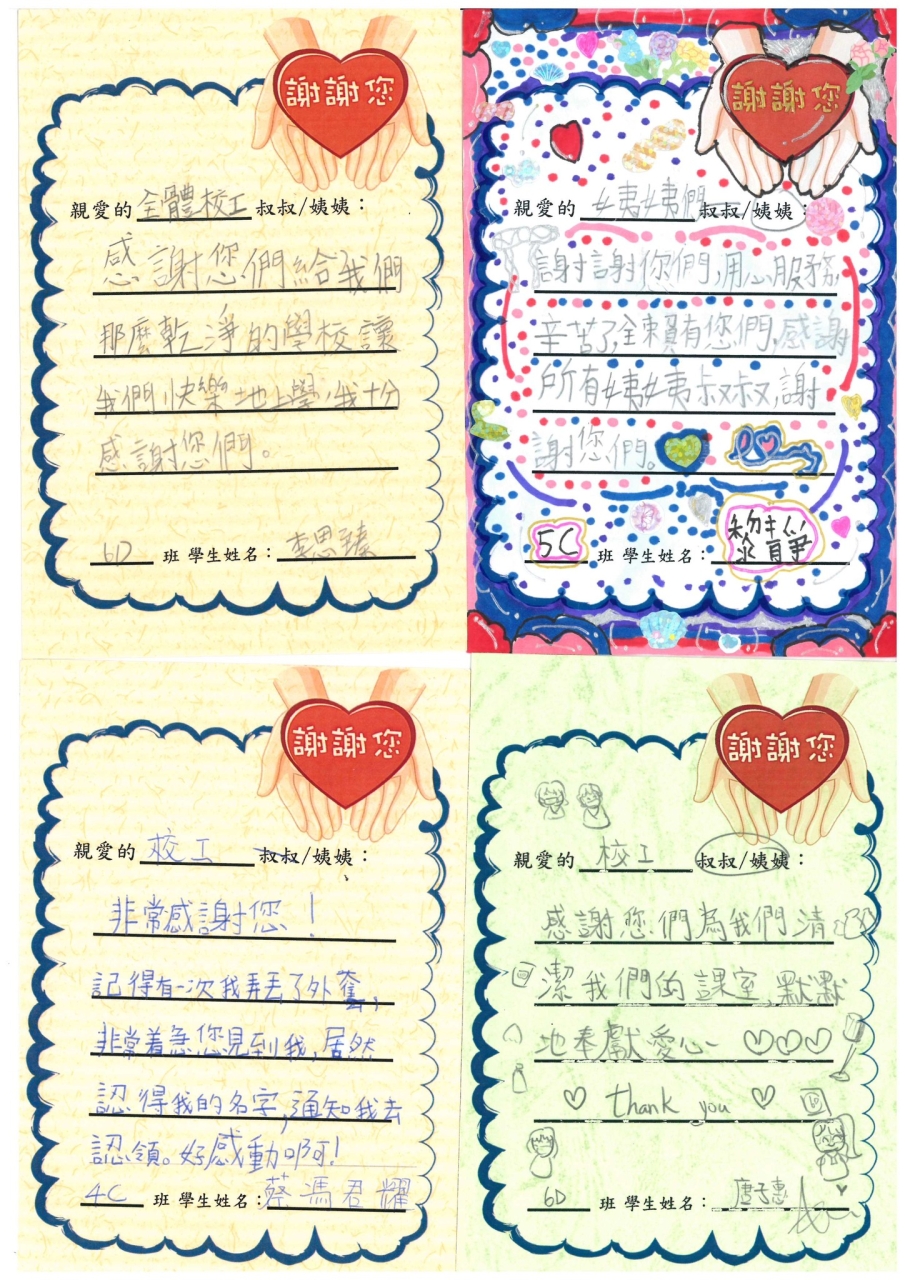 謝謝您
親愛的 全體校工 叔叔/姨姨：
感謝您們給我們
那麼乾淨的學校讓
我們快樂地上學，我十分
感謝您們。
6D 班 學生姓名： 李思臻
謝謝您
親愛的 姨姨們 叔叔/姨姨：
謝謝你們，用心服務，
辛苦了，全賴有您們，感謝
所有姨姨叔叔，謝
謝您們。
5C 班 學生姓名：
謝謝您
親愛的 校工 叔叔/姨姨：
非常感謝您！
記得有一次我弄丟了外套，
非常着急，您見到我，居然
認得我的名字，通知我去
認領。好感動啊！
4C 班 學生姓名： 蔡馮君耀
謝謝您
親愛的 校工 叔叔/姨姨：
感謝您們為我們清
潔我們的課室，默默
地奉獻愛心~
thank you
6D 班 學生姓名： 唐子惠